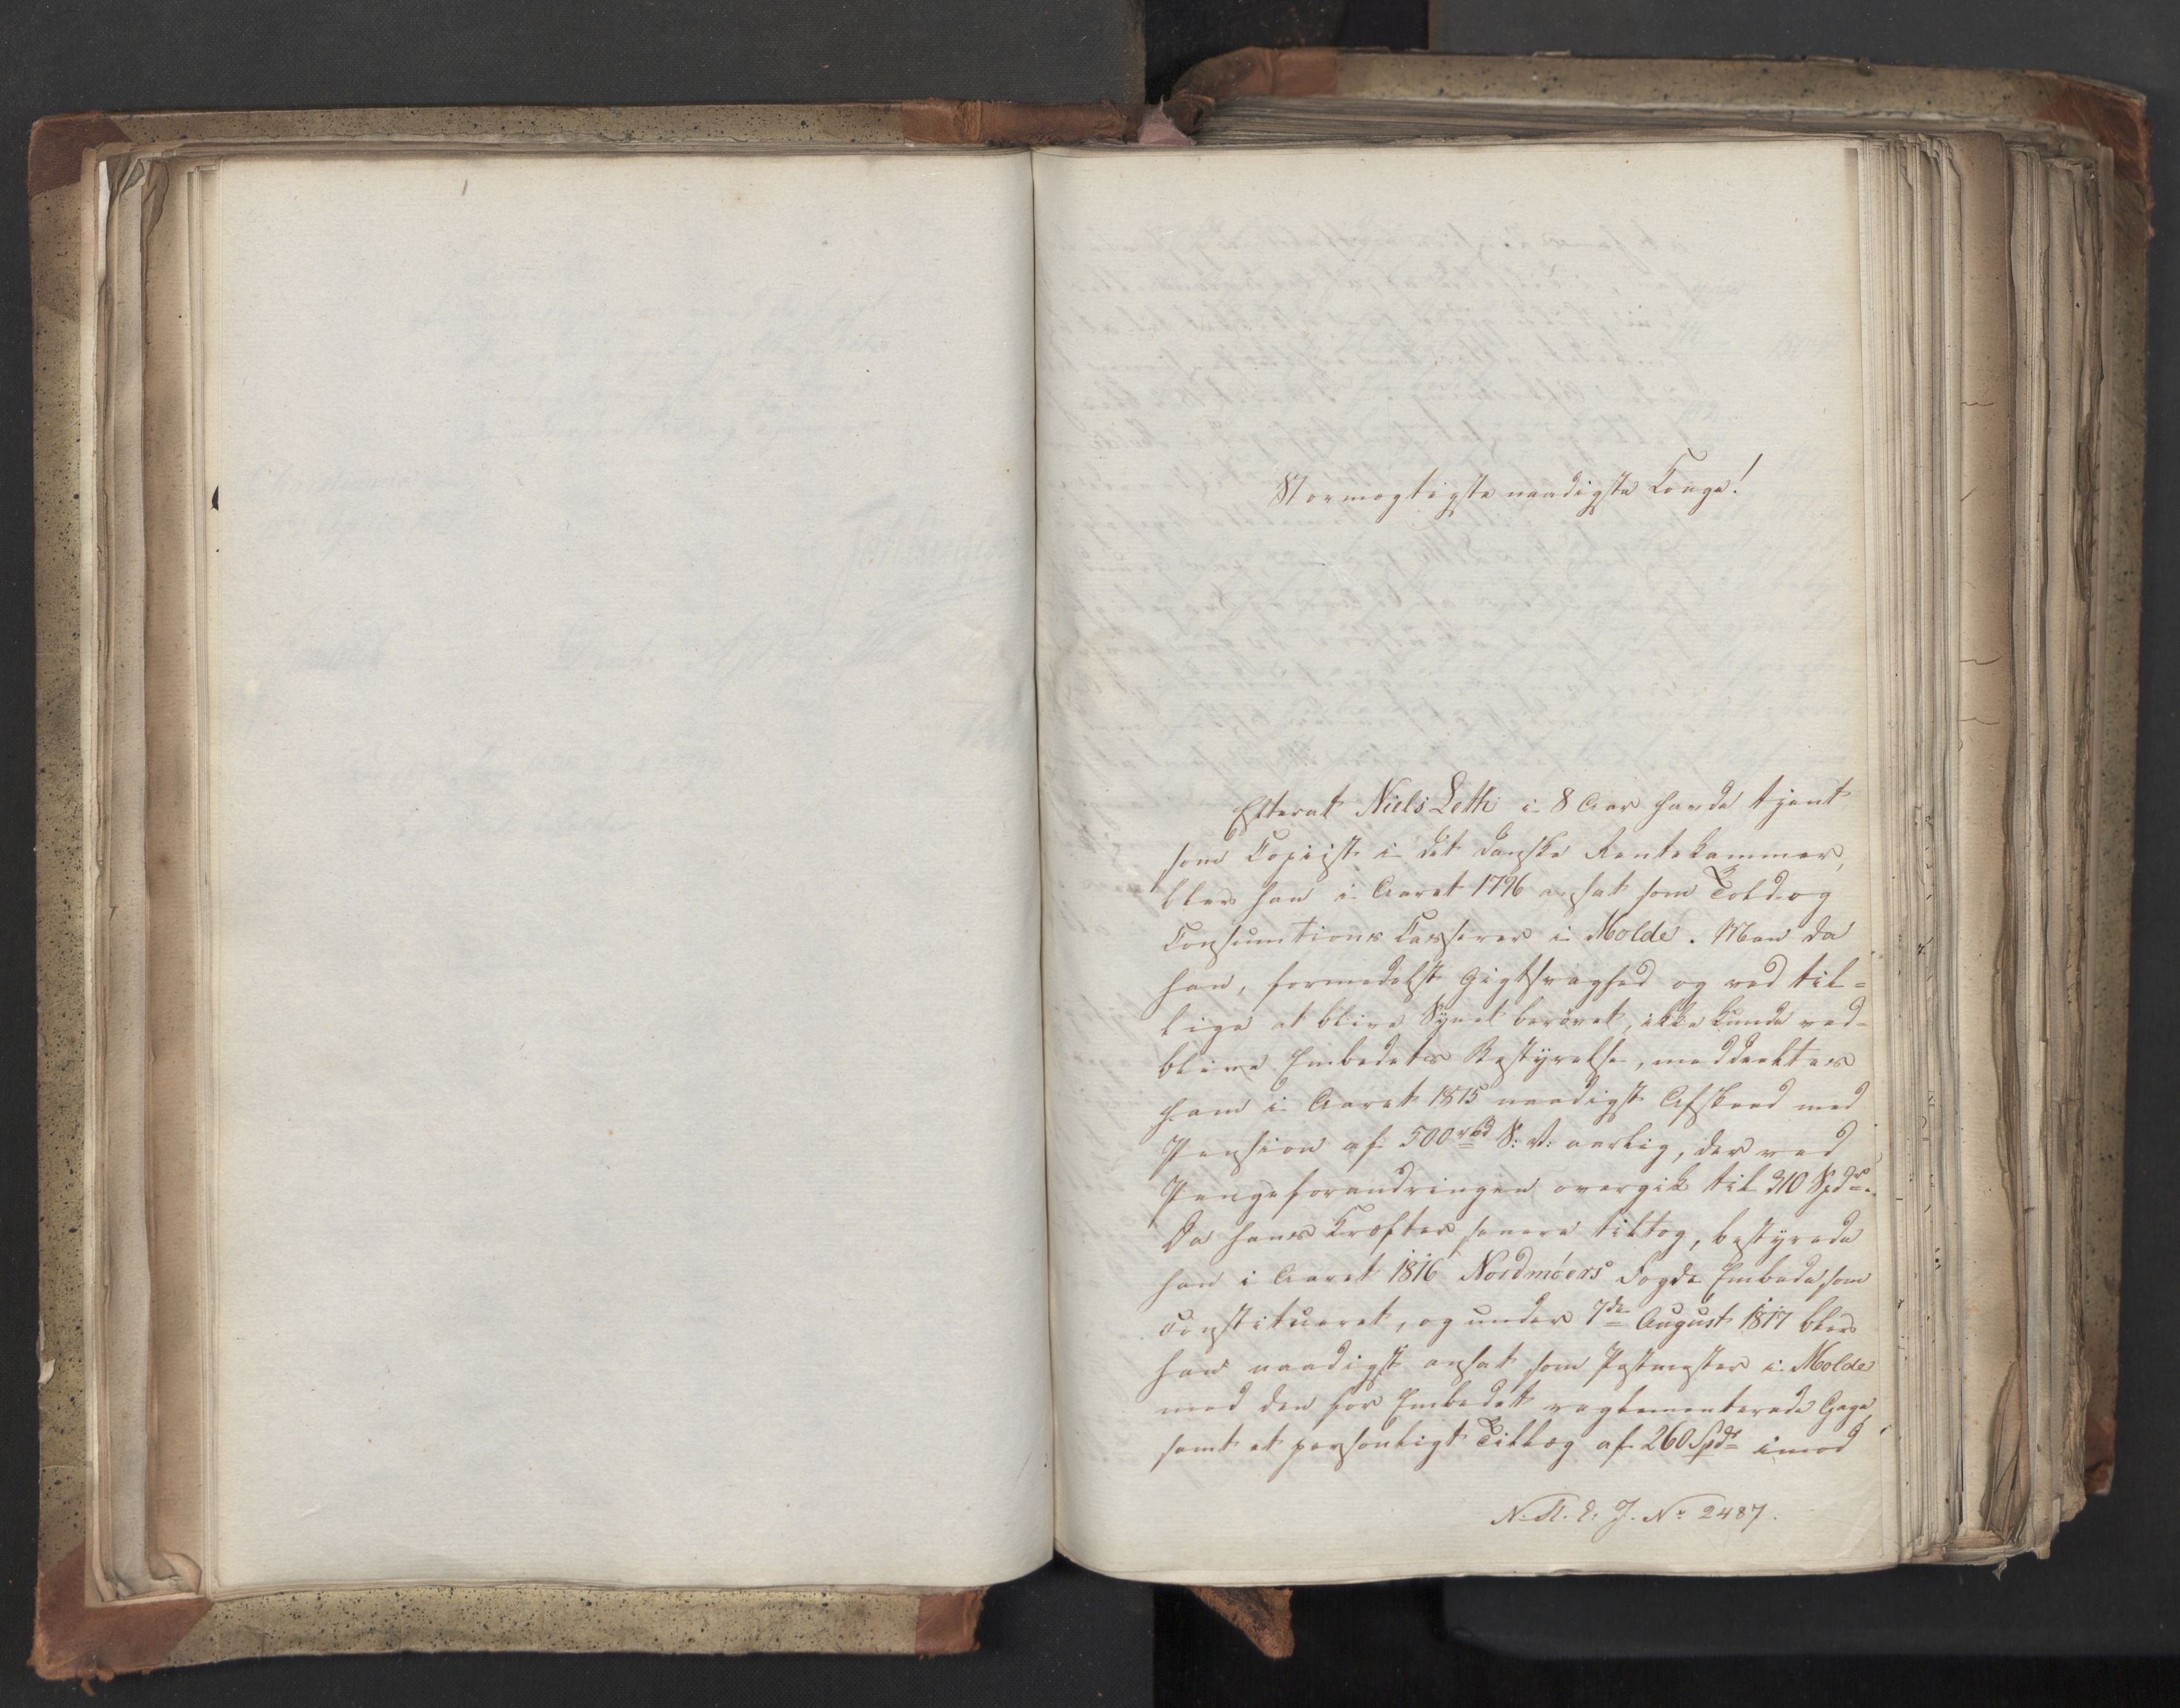 Stormægtigste naadigste Konge!
Efterat Niels Leth i 8 Aar havde tjent
som Copiist i det danske Rentekammer,
blev han i Aaret 1796 ansat som Told og
Consumtions Casserer i Molde. Men da
han, formedelst Gigtsvaghed og ved til=
lige at blive Synet berøvet, ikke kunde ved-
blive Embedets Bestyrelse, meddeeltes
ham i Aaret 1815 naadigst Afskeed med
Pension af 500 rbd S: V: aarlig, der ved
Pengeforandringen overgik til 310 Spdr.
Da hans Kræfter senere tiltog, bestyrede
han i Aaret 1816 Nordmøers Fogde Embede, som
Constitueret, og under 7de August 1817 blev
han naadigst ansat som Postmester i Molde
med den for Embedet reglementerede Gage,
samt et personligt Tillæg af 260 Spdr imod
N. R. E. J. No 2487.